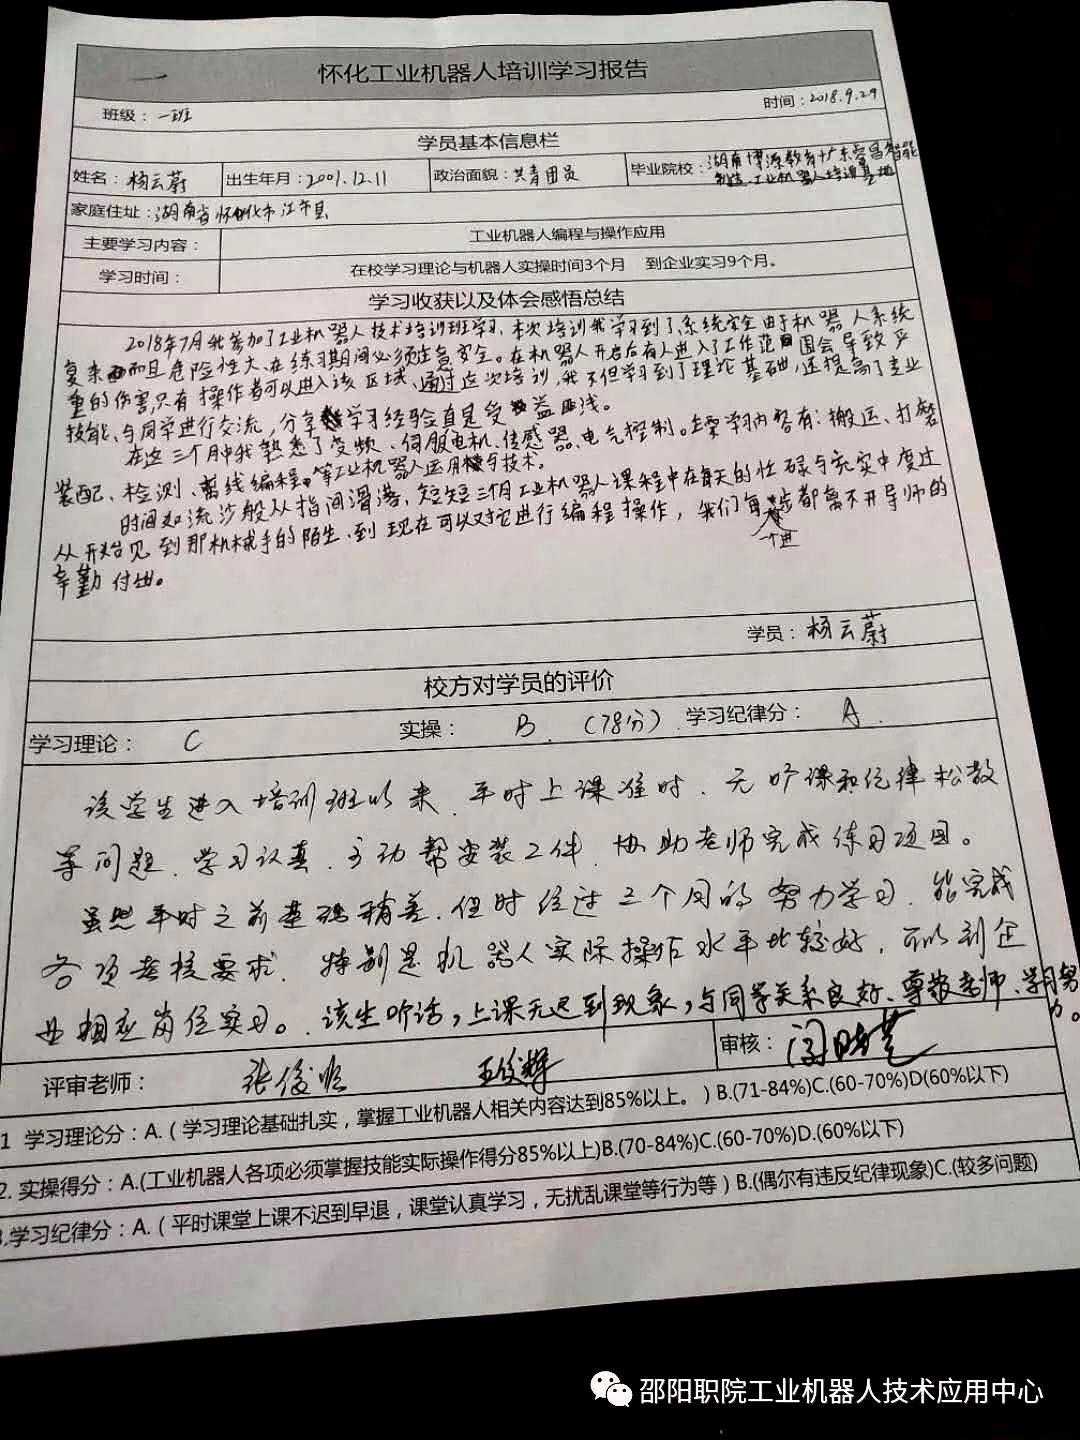 怀化工业机器人培训学习报告
班级：一班 时间：2018.9.29
学员基本信息栏
姓名：杨云蔚 出生年月：2001.12.11 政治面貌：共青团员 毕业院校：湖南博源教育+广东 智能
制造工业机器人培训基地
家庭住址：湖南省怀化市
主要学习内容： 工业机器人编程与操作应用
学习时间： 在校学习理论与机器人实操时间3个月 到企业实习9个月。
学习收获以及体会感悟总结
2018年7月我参加了工业机器人技术培训班学习，本次培训我学习到了系统安全由于机器人系统
复杂而且危险性大，在练习期间必须注意安全。在机器人开启后有人进入了工作范围会导致严
重的伤害，只有操作者可以进入该区域，通过这次培训，我不但学习到了理论基础，还提高了专业
技能、与同学进行交流，分享学习经验真是受益匪浅。
在这三个月中我熟悉了变频、伺服电机、传感器、电气控制。主要学习内容有：搬运、打磨
装配、检测、离线编程。等工业机器人运用与技术。
时间如流沙般从指间滑落，短短三个月工业机器人课程中在每天的忙碌与充实中度过
从开始见到那机械手的陌生，到现在可以对它进行编程操作，我们每一个进步都离不开导师的
辛勤付出。
学员：杨云蔚
校方对学员的评价
学习理论： C 实操： B （78分） 学习纪律分： A
该学生进入培训班以来，平时上课准时，无旷课和纪律松散
等问题，学习认真，主动帮安装工件，协助老师完成练习项目。
虽然平时之前基础稍差，但时经过三个月的努力学习，能完成
各项考核要求，特别是机器人实际操作水平比较好，可以到企
业相应岗位实习。该生听话，上课无迟到现象，与同学关系良好、尊敬老师、学习努
力。
评审老师： 张俊 王俊辉 审核：
1 学习理论分：A.（学习理论基础扎实，掌握工业机器人相关内容达到85%以上。）B.(71-84%)C.(60-70%)D(60%以下)
2. 实操得分：A.(工业机器人各项必须掌握技能实际操作得分85%以上)B.(70-84%)C.(60-70%)D.(60%以下)
3.学习纪律分：A.（平时课堂上课不迟到早退，课堂认真学习，无扰乱课堂等行为等）B.(偶尔有违反纪律现象)C.(较多问题)
邵阳职院工业机器人技术应用中心